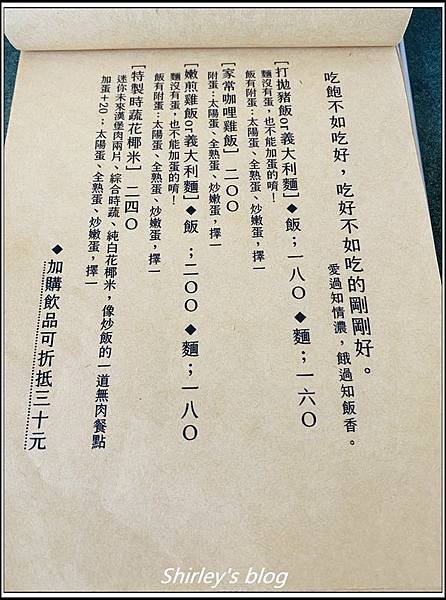 吃飽不如吃好，吃好不如吃的剛剛好。
愛過知情濃，餓過知飯香。
[打拋豬飯or義大利麵]◆飯；一八○ ◆麵；一六○
麵沒有蛋，也不能加蛋的唷！
飯有附蛋：太陽蛋、全熟蛋、炒嫩蛋，擇一
[家常咖哩雞飯] 二○○
附蛋：太陽蛋、全熟蛋、炒嫩蛋，擇一
[嫩煎雞飯or義大利麵]◆飯；二○○ ◆麵；一八○
麵沒有蛋，也不能加蛋的唷！
飯有附蛋：太陽蛋、全熟蛋、炒嫩蛋，擇一
[特製時蔬花椰米] 二四○
迷你未來漢堡肉兩片、綜合時蔬、純白花椰米，像炒飯的一道無肉餐點
加蛋+20：太陽蛋、全熟蛋、炒嫩蛋，擇一
◆加購飲品可折抵三十元
Shirley's blog